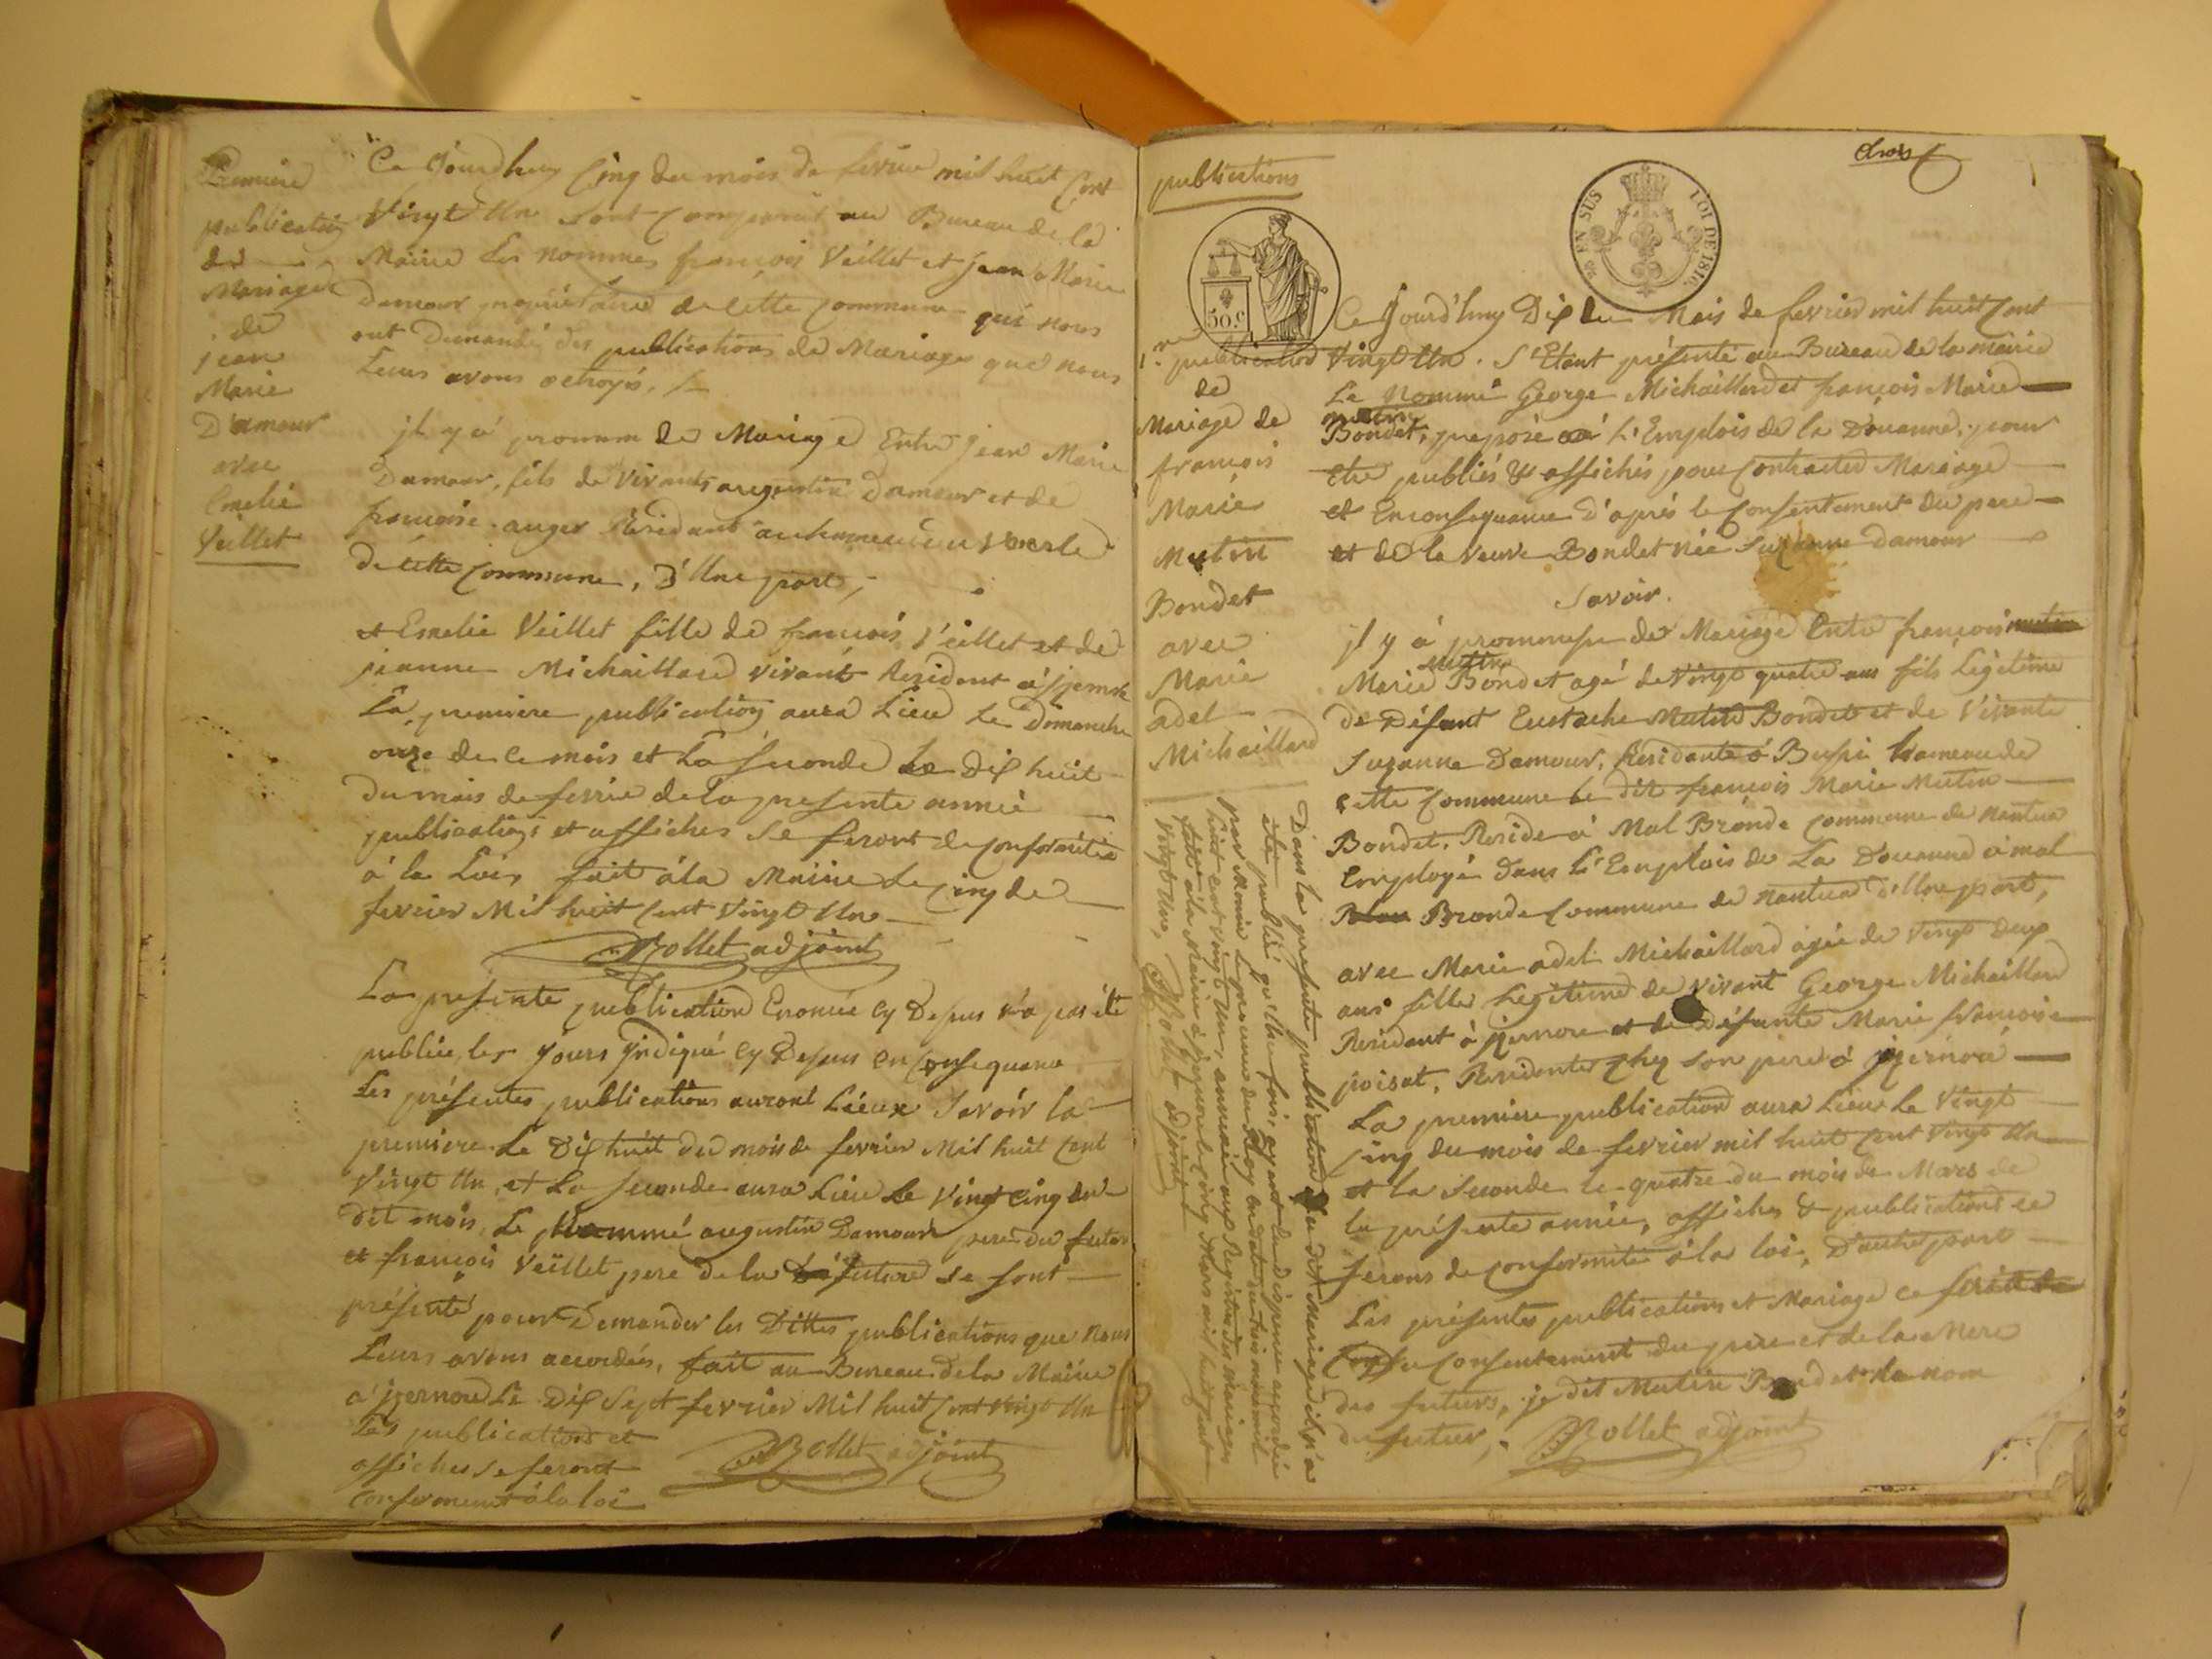 Premiere
publication
de
Mariage
de
jean
Marie
D'amour
avec
Emelie
Veillet
Ce Jourdhuy Cinq du mois de fevrier mil huit Cent
Vingt Un sont comparut au Bureau de la
Mairie les nommes françois Veillet et jean Marie
Damour propriétaire de cette commune qui nous
ont demandé des publications de Mariage que nous
Leurs avons octroyés.
jl y a promom de Mariage Entre jean Marie
Damour, fils de Vivants augustin Damour et de
françoise auger Residant au hameau du
de cette Commune, D'Une part,
et Emelie Veillet fille de françois Veillet et de
jeanne Michaillard vivant Resident à
La premiere publication aura Lieu Le Dimanche
onze de ce mois et La Seconde le Dix huit
du mois de fevrie de la presente année
publications et affiches se feront de conformitée
à la Lois fait à la Mairie Le cinq de
fevrier Mil huit Cent Vingt Un
Bollet adjoint
La presente publication Enoncée Cy Desus n'a pas été
publiée les Jours Jndiqué Cy Desus en Consequance
Les présentes publications auront Lieux Savoir la
premiere Le Dix huit du mois de fevrier Mil huit Cent
Vingt Un, et La Seconde aura Lieu Le Vingt Cinq du
dit mois, Le Nommé augustin Damour pere du futur
et françois Veillet pere de la future se sont
présenté pour Demander les Dittes publications que Nous
Leurs avons accordées, fait au Bureau de la Mairie
a jzernore Le Dix Sept fevrier Mil huit Cent Vingt Un
Les publications et
affiches se feront
conformement à la loi
Bollet adjoint
publications
EN SUS
LOI DE 1816
50.c
1.re publication
de
Mariage de
françois
Marie
Mutin
Bondet
avec
Marie
adel
Michaillard
Ce Jourd'huy Dix du Mois de fevrier mil huit Cent
Vingt Un. S'Etant présenté au Bureau de la mairie
Le Nommé George Michaillard et françois Marie
mutin
Bondet, préposé à L'Emplois de la Douanne, pour
Etre publiés & affichés pour Contracter Mariage
et Enconsequance d'après le Consentement du pere
et de la veuve Bondet née Suzanne Damour
Savoir.
jl y a prommesse de Mariage Entre françois mutin
Mutin
Marie Bondet agé de Vingt quatre ans fils Légitime
de Défunt Eustache Mutin Bondet et de Vivante
Suzanne Damour, Residante à Bussi hameau de
cette Commune Le dit françois Marie Mutin
Bondet, Reside à Mal Bronde Commune de Nantua
Employé dans L'Emplois de La Douanne à mal
Bronde Commune de Nantua d'Une part,
avec Marie adel Michaillard agée de Vingt Deux
ans fille Legitime de vivant George Michaillard
Residant à jzernore et de Défunte Marie françoise
poisat, Residente chez son pere à jzernore
La premiere publication aura Lieu Le Vingt
Cinq du mois de fevrier mil huit Cent Vingt Un
et la Seconde le quatre du mois de Mars de
la présente année, affiches & publications se
ferons de conformité à la loi, D'autre part
Les présentes publications et Mariage ce
Consentement du pere et de la Mere
des futurs, je dit Mutin Bondet le nom
du futur,
Bollet adjoint
Dans la presente publication du dit Mariage il n'a
été publié qu'Une fois, ayant eu dispense accordée
par Monsr Le procureur du Roy en date du trois
huit cent vingt Un, annexée aux Registre des Mariages
fait à la Mairie à jzernore le Cinq Mars mil huit Cent
Vingt Une, Bollet adjoint